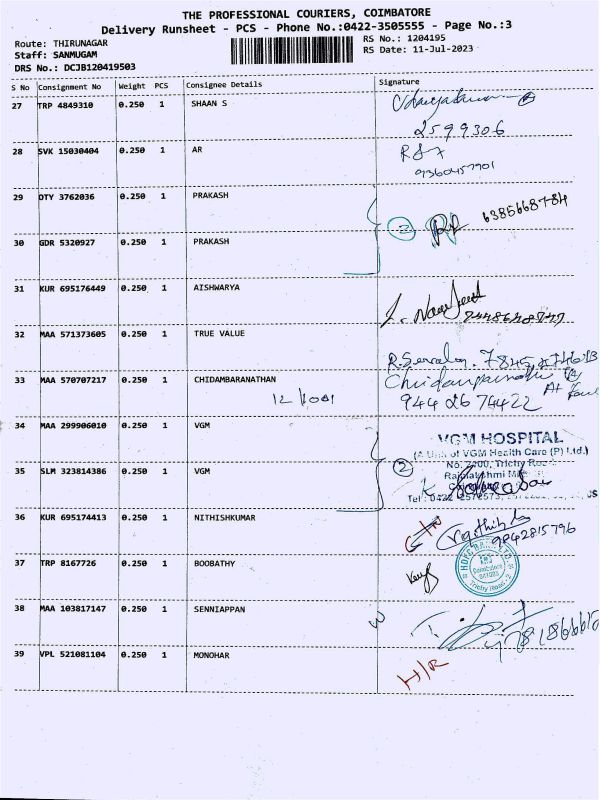 THE PROFESSIONAL COURIERS, COIMBATORE
Delivery Runsheet - PCS - Phone No.:0422-3505555 - Page No.:3
Route: THIRUNAGAR RS No.: 1204195
Staff: SANMUGAM RS Date: 11-Jul-2023
DRS No.: DCJB120419503
S No Consignment No Weight PCS Consignee Details Signature
27 TRP 4849310 0.250 1 SHAAN S
2599306
28 SVK 15030404 0.250 1 AR
9360457901
29 DTY 3762036 0.250 1 PRAKASH
2 6385668784
30 GDR 5320927 0.250 1 PRAKASH
31 KUR 695176449 0.250 1 AISHWARYA
32 MAA 571373605 0.250 1 TRUE VALUE
33 MAA 570707217 0.250 1 CHIDAMBARANATHAN
12/1001 9442674422
34 MAA 299906010 0.250 1 VGM
VGM HOSPITAL
(A Unit of VGM Health Care (P) Ltd.)
No: 2100, Trichy Road
35 SLM 323814386 0.250 1 VGM 2
36 KUR 695174413 0.250 1 NITHISHKUMAR
9842815796
37 TRP 8167726 0.250 1 BOOBATHY
HDFC BANK LTD.
Coimbatore
Trichy Road
38 MAA 103817147 0.250 1 SENNIAPPAN
39 VPL 521081104 0.250 1 MONOHAR
H/R